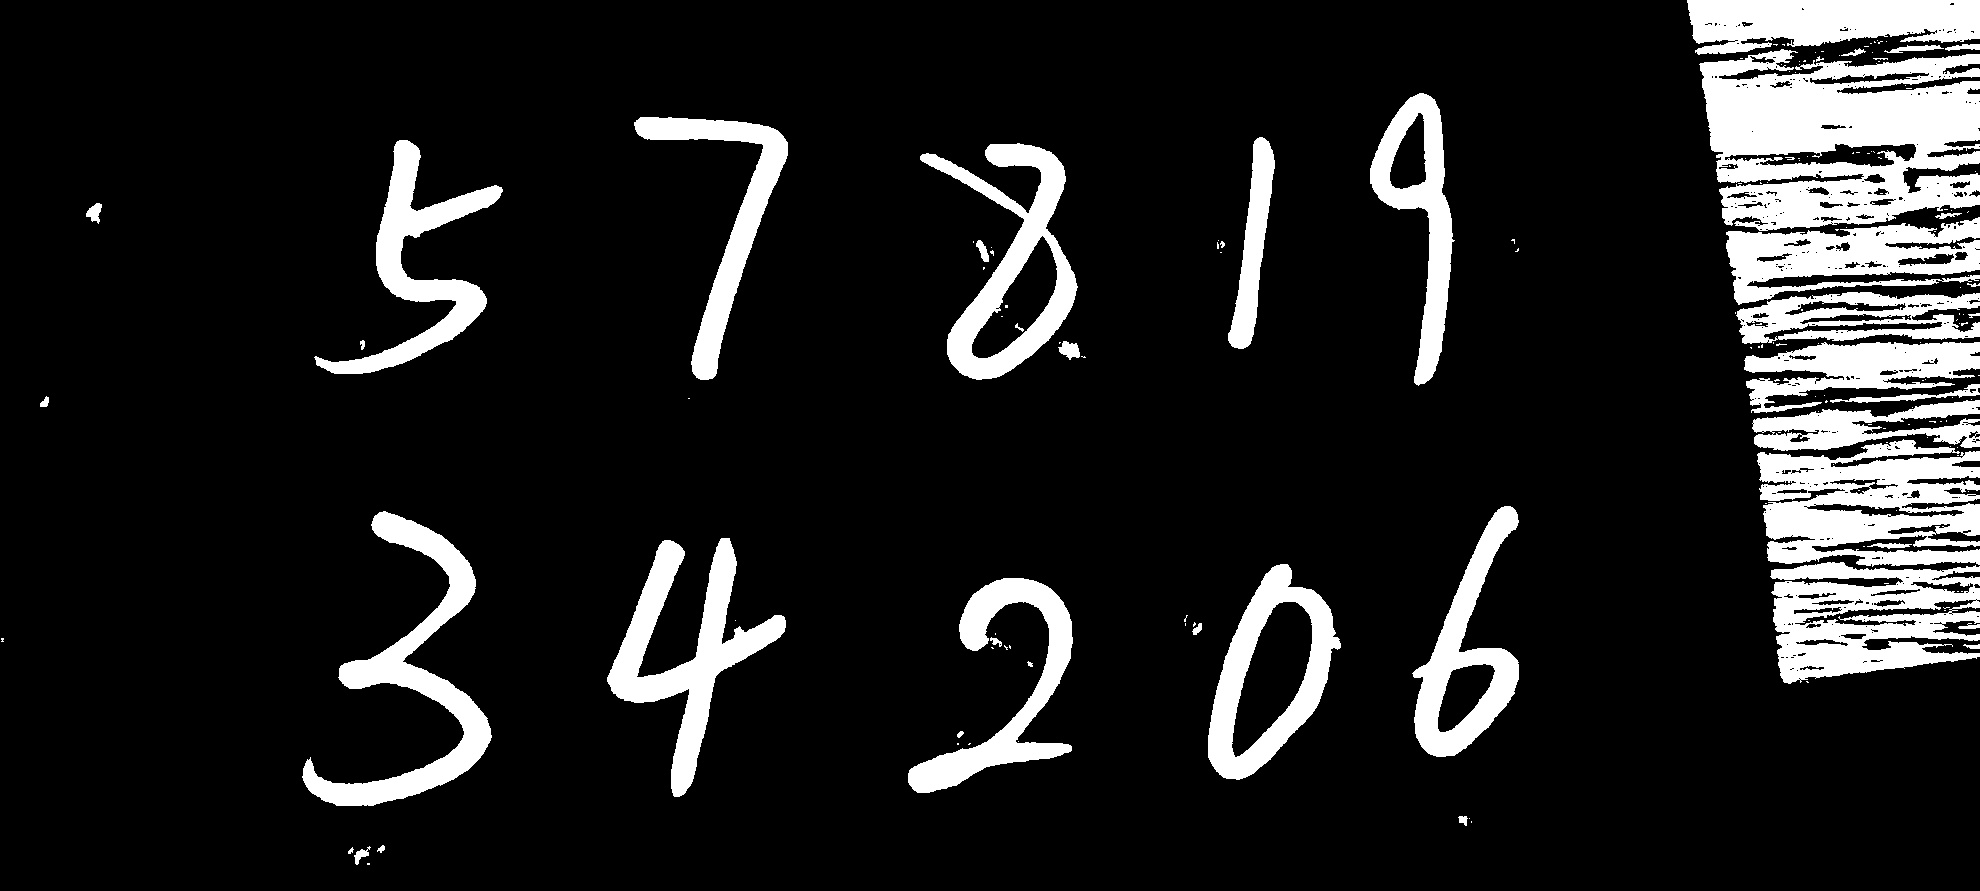 5 7 8 1 9
3 4 2 0 6